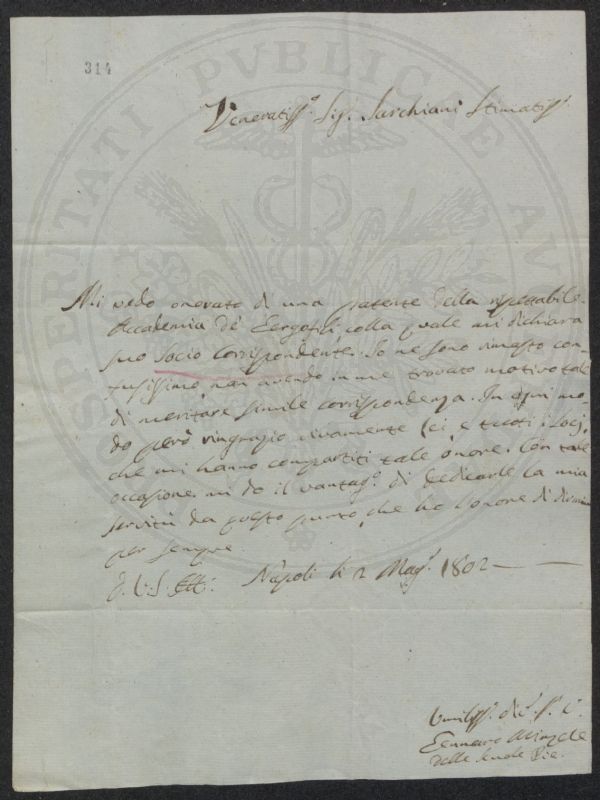 314
PROSPERITATI PUBLICAE AU
Veneratiss.o Sig. Sarchiani Stimatiss.
Mi vedo onorato di una patente della rispettabile
Accademia de' Georgofili colla quale mi dichiara
suo Socio Corrispondente. Io ne sono rimasto con-
fusissimo, non avendo in me trovato motivo tale
di meritare simile corrispondenza. In ogni mo-
do però ringrazio vivamente Lei e tutti i Socj,
che mi hanno compartiti tale onore. Con tale
occasione mi do il vantag.o di dedicarle la mia
servitù da questo punto, che ho l'onore di dirmi
per sempre
Napoli li 2 Mag.o 1802
Umiliss.
Gennaro
delle Scuole Pie.